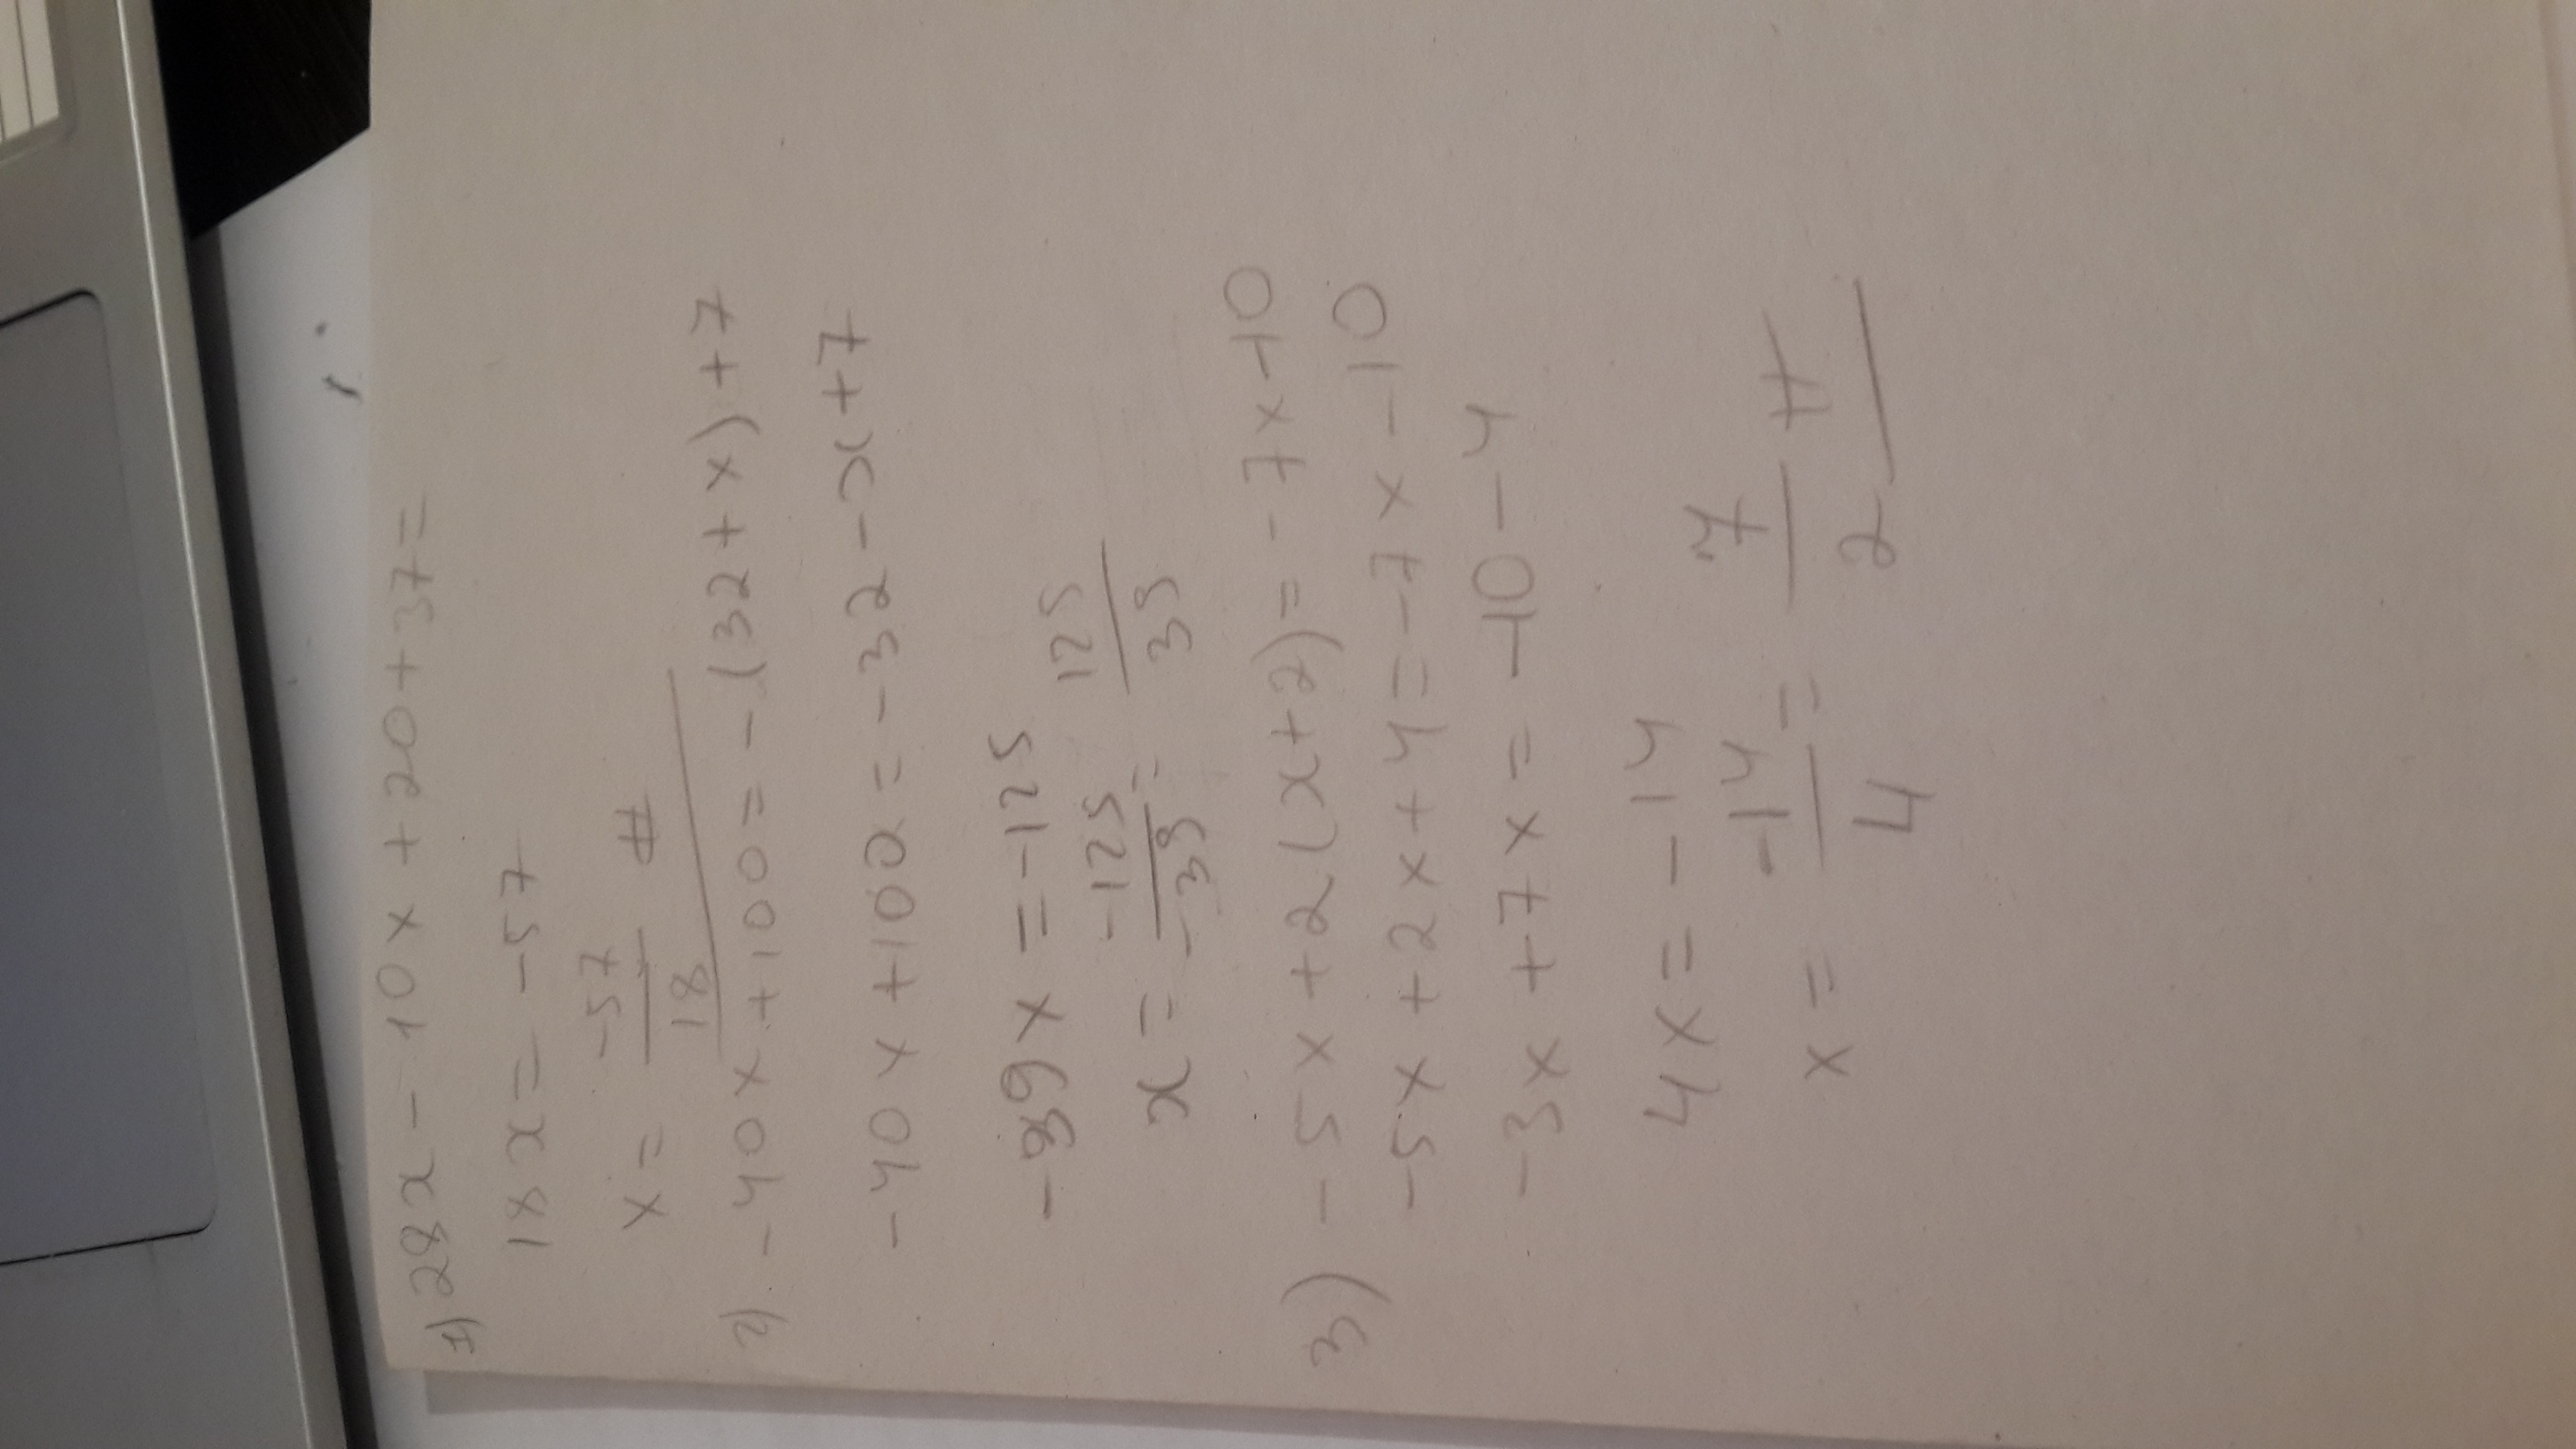 1) 28x - 10x + 20 + 37 =
18x = -57
x = -57/18 #
2) -40x + 100 = -(32 + x) + 7
-40x + 100 = -32 - x + 7
-39x = -125
x = -125/-39 = 125/39
3) -5x + 2(x+2) = -7x - 10
-5x + 2x + 4 = -7x - 10
-3x + 7x = -10 - 4
4x = -14
x = -14/4 = 7/2 #